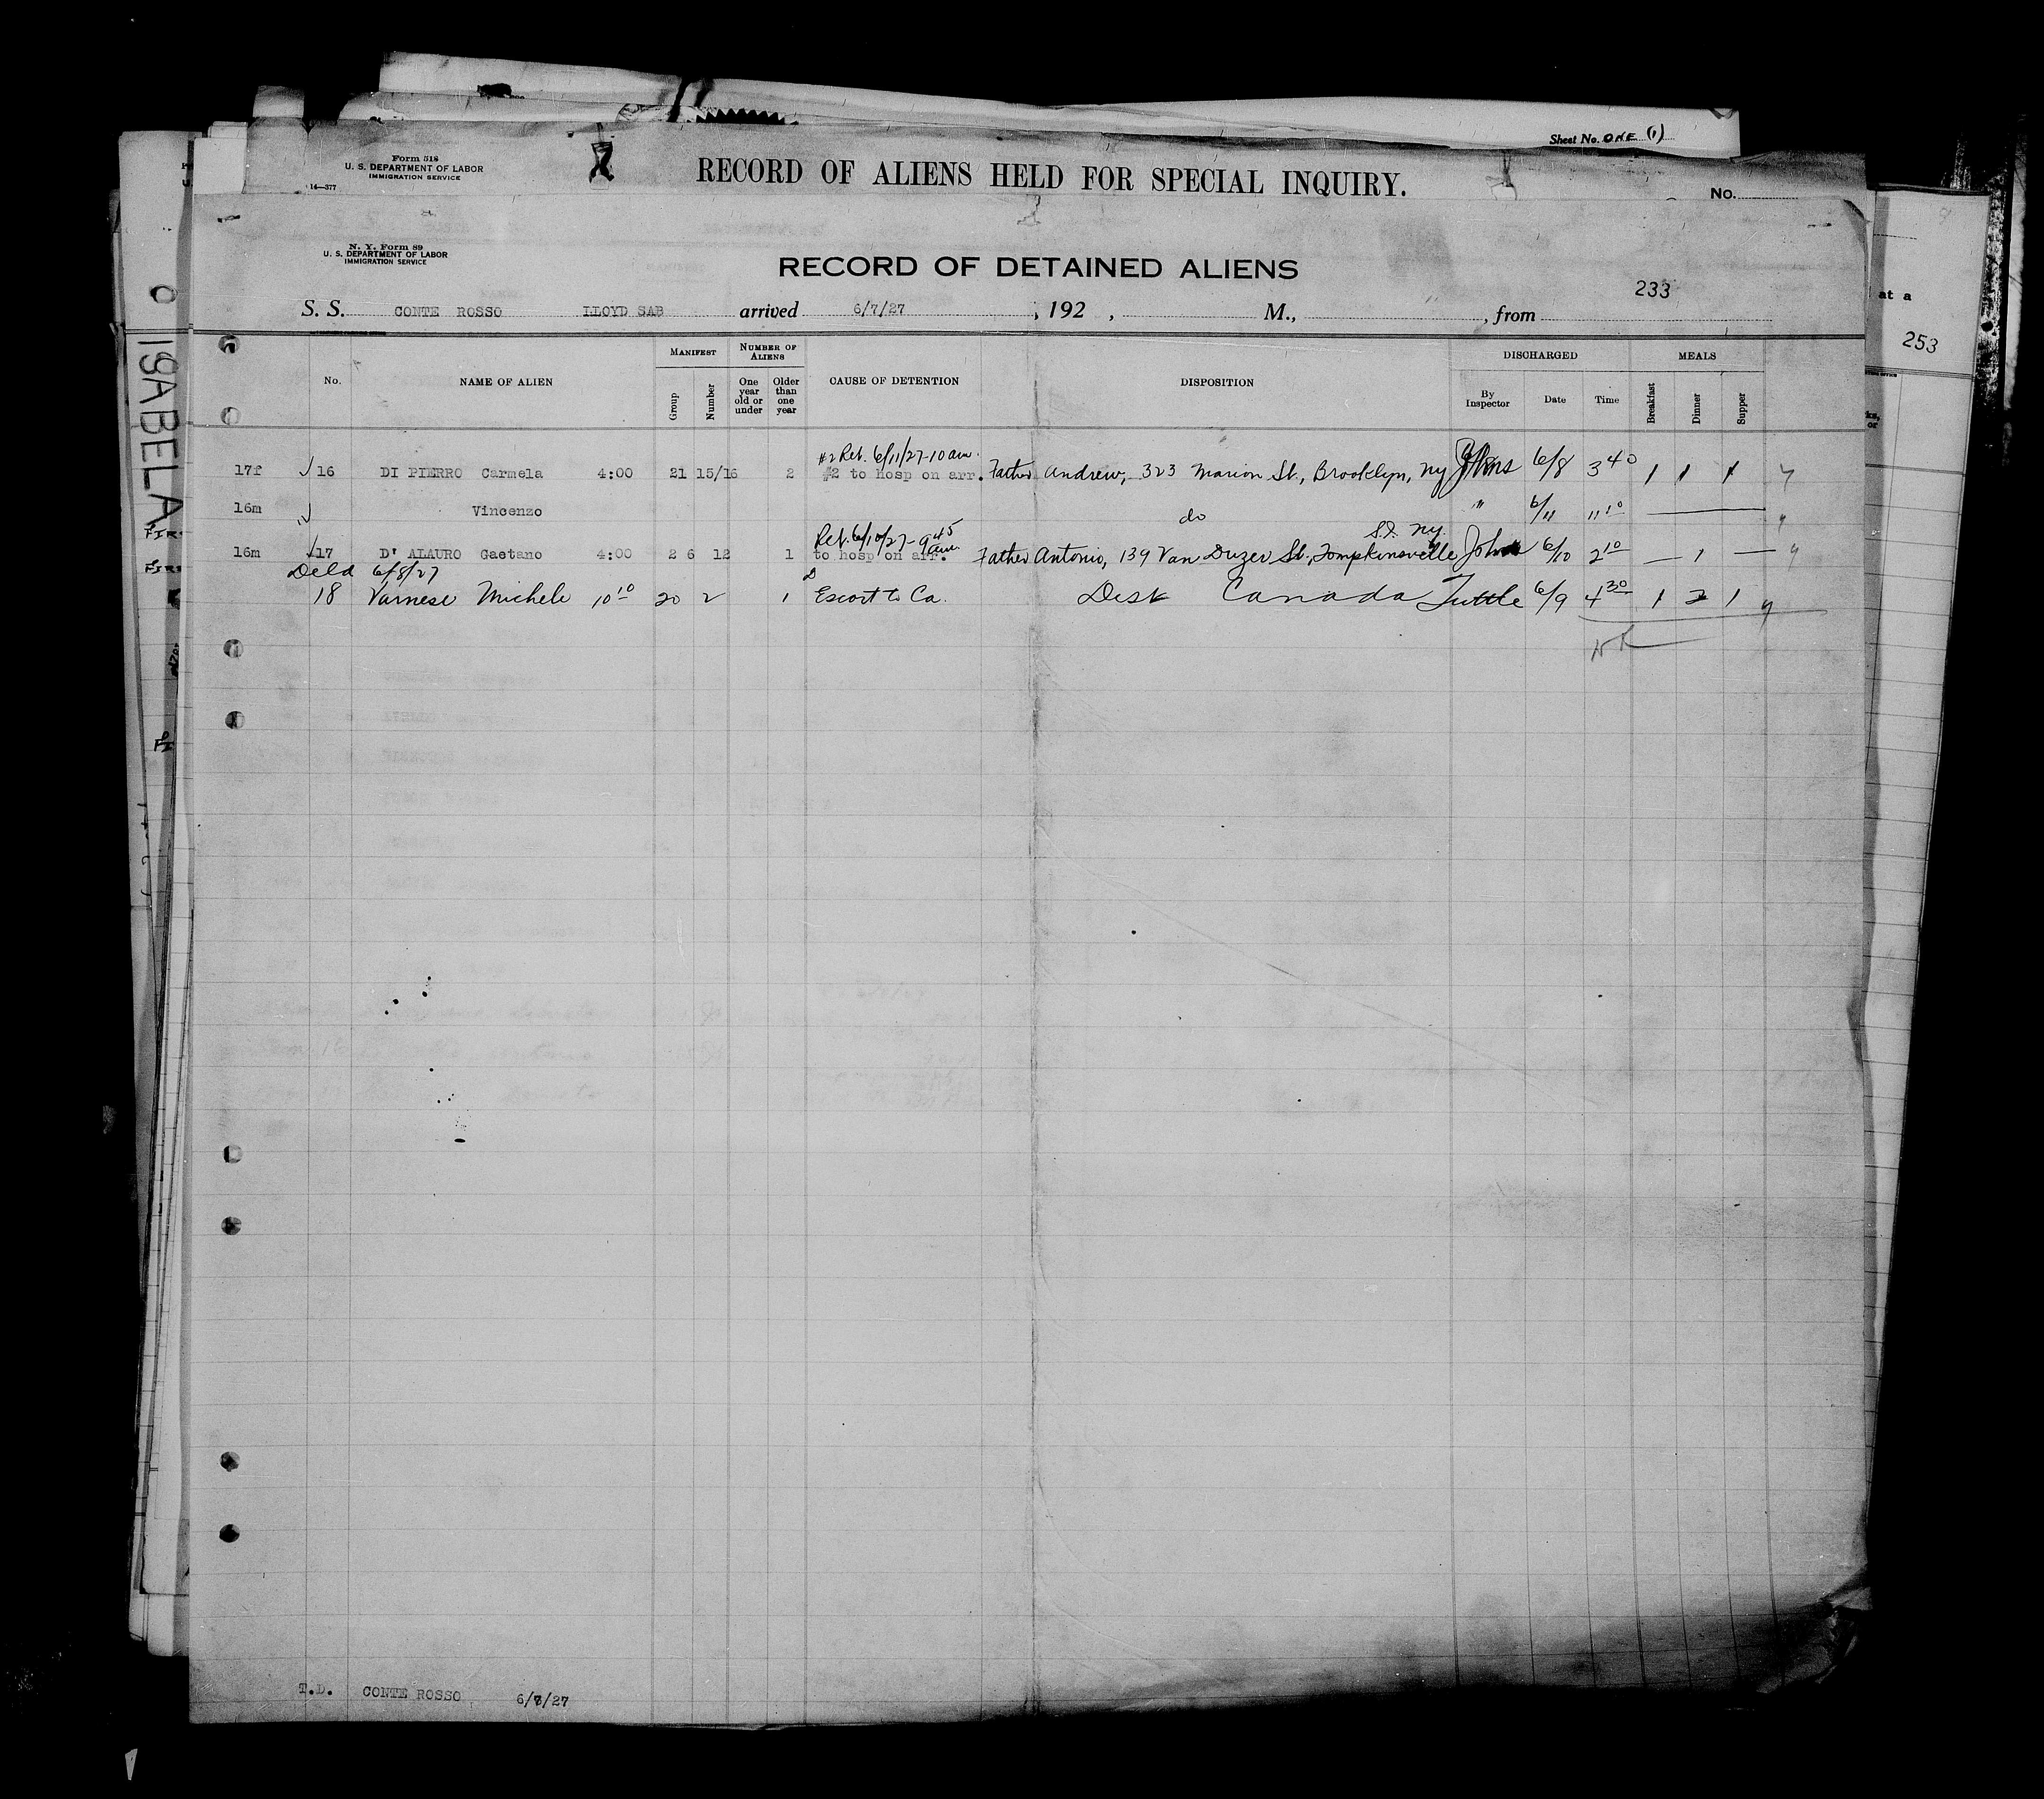 Sheet No. ONE (1)
Form 518
U. S. DEPARTMENT OF LABOR
IMMIGRATION SERVICE
14—377
RECORD OF ALIENS HELD FOR SPECIAL INQUIRY.
No.
N. Y. Form 89
U. S. DEPARTMENT OF LABOR
IMMIGRATION SERVICE
RECORD OF DETAINED ALIENS
233
at a
253
ISABELA
S. S. CONTE ROSSO LLOYD SAB arrived 6/7/27, 192 , M., , from
No. NAME OF ALIEN MANIFEST Group Number NUMBER OF ALIENS One year old or under Older than one year CAUSE OF DETENTION DISPOSITION DISCHARGED By Inspector Date Time MEALS Breakfast Dinner Supper
#2 Ret. 6/11/27-10 am.
17f 16 DI PIERRO Carmela 4:00 21 15/16 2 #2 to hosp on arr. Father Andrew, 323 Marion St., Brooklyn, NY Johns 6/8 3 40 1 1 1
16m Vincenzo do " 6/11 11 10
Ret. 6/10/27-9 45 am. S.I. NY.
16m 17 D' ALAURO Gaetano 4:00 2 6 12 1 to hosp on arr. Father Antonio, 139 Van Duzer St., Tompkinsville Johns 6/10 2 10 — 1 —
Deld 6/8/27
18 Varnese Michele 10 10 20 2 1 Escort to Ca. Desk Canada Tuttle 6/9 4 30 1 2 1
T.D. CONTE ROSSO 6/7/27